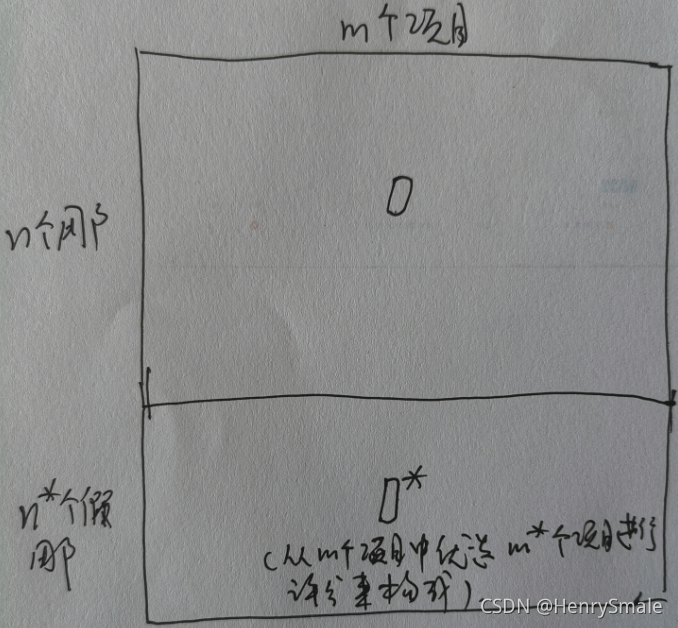 m个项目
n个用户
n*个假
用户
0
0*
(从m个项目中优选m*个项目进行
评分来构成)
CSDN @HenrySmale